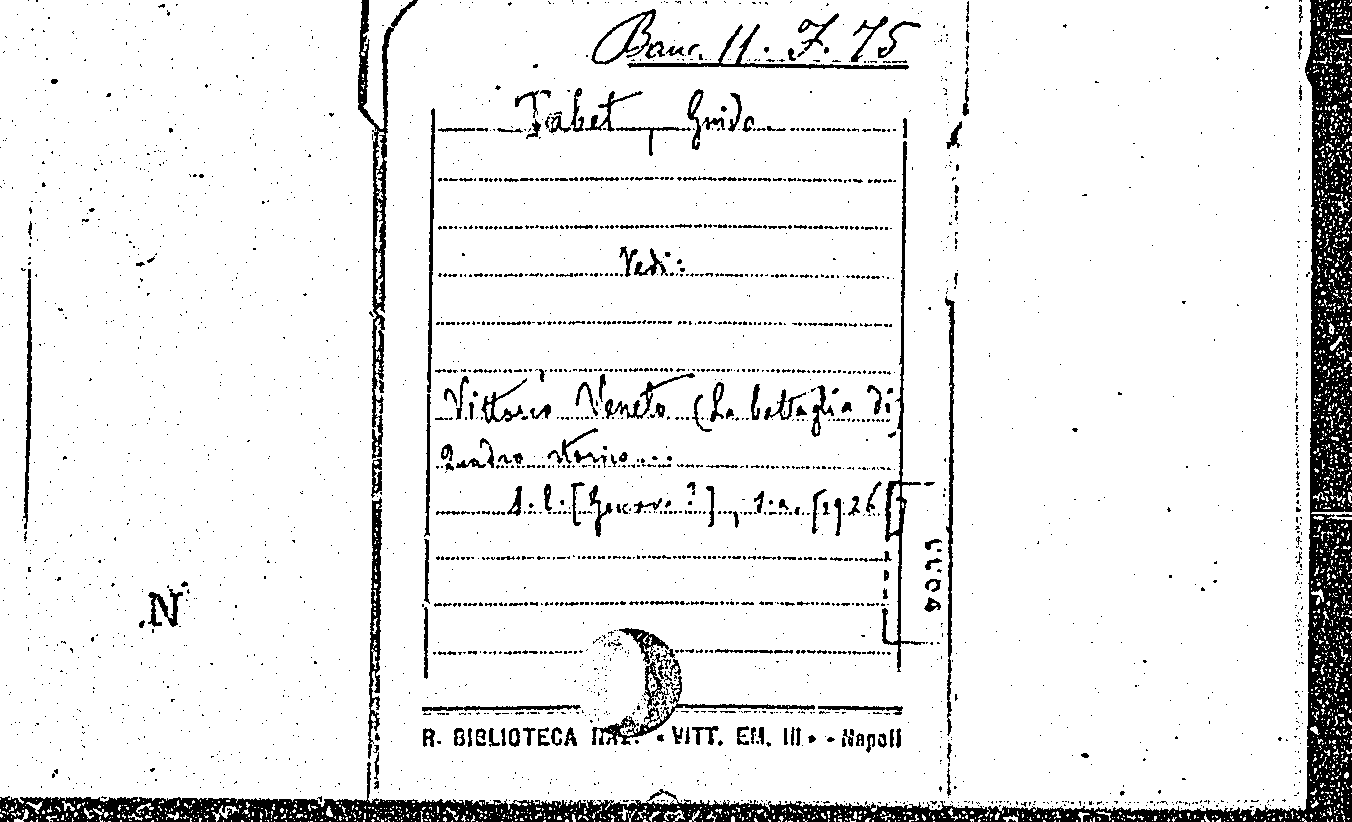 Banc. 11. F. 75
Tabet, Guido.
Vedi:
Vittorio Veneto (La battaglia di)
Quadro storico...
s.l. [Genova?], s.a. [1926]
.N
R. BIBLIOTECA NAZ. "VITT. EM. III" - Napoli